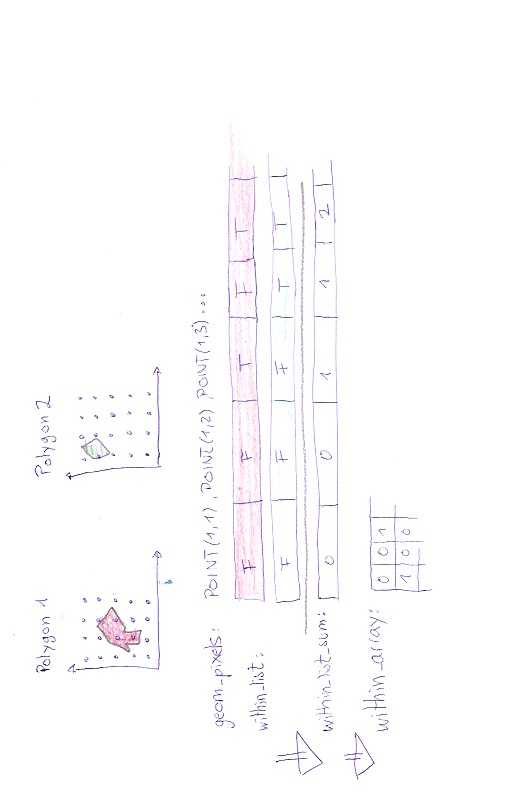 Polygon 1 Polygon 2
geom_pixels: POINT(1,1), POINT(1,2), POINT(1,3)...
within_list: F F T F T
F F F T T
⇒ within_list_sum: 0 0 1 1 2
⇒ within_array: 0 0 1
1 0 0